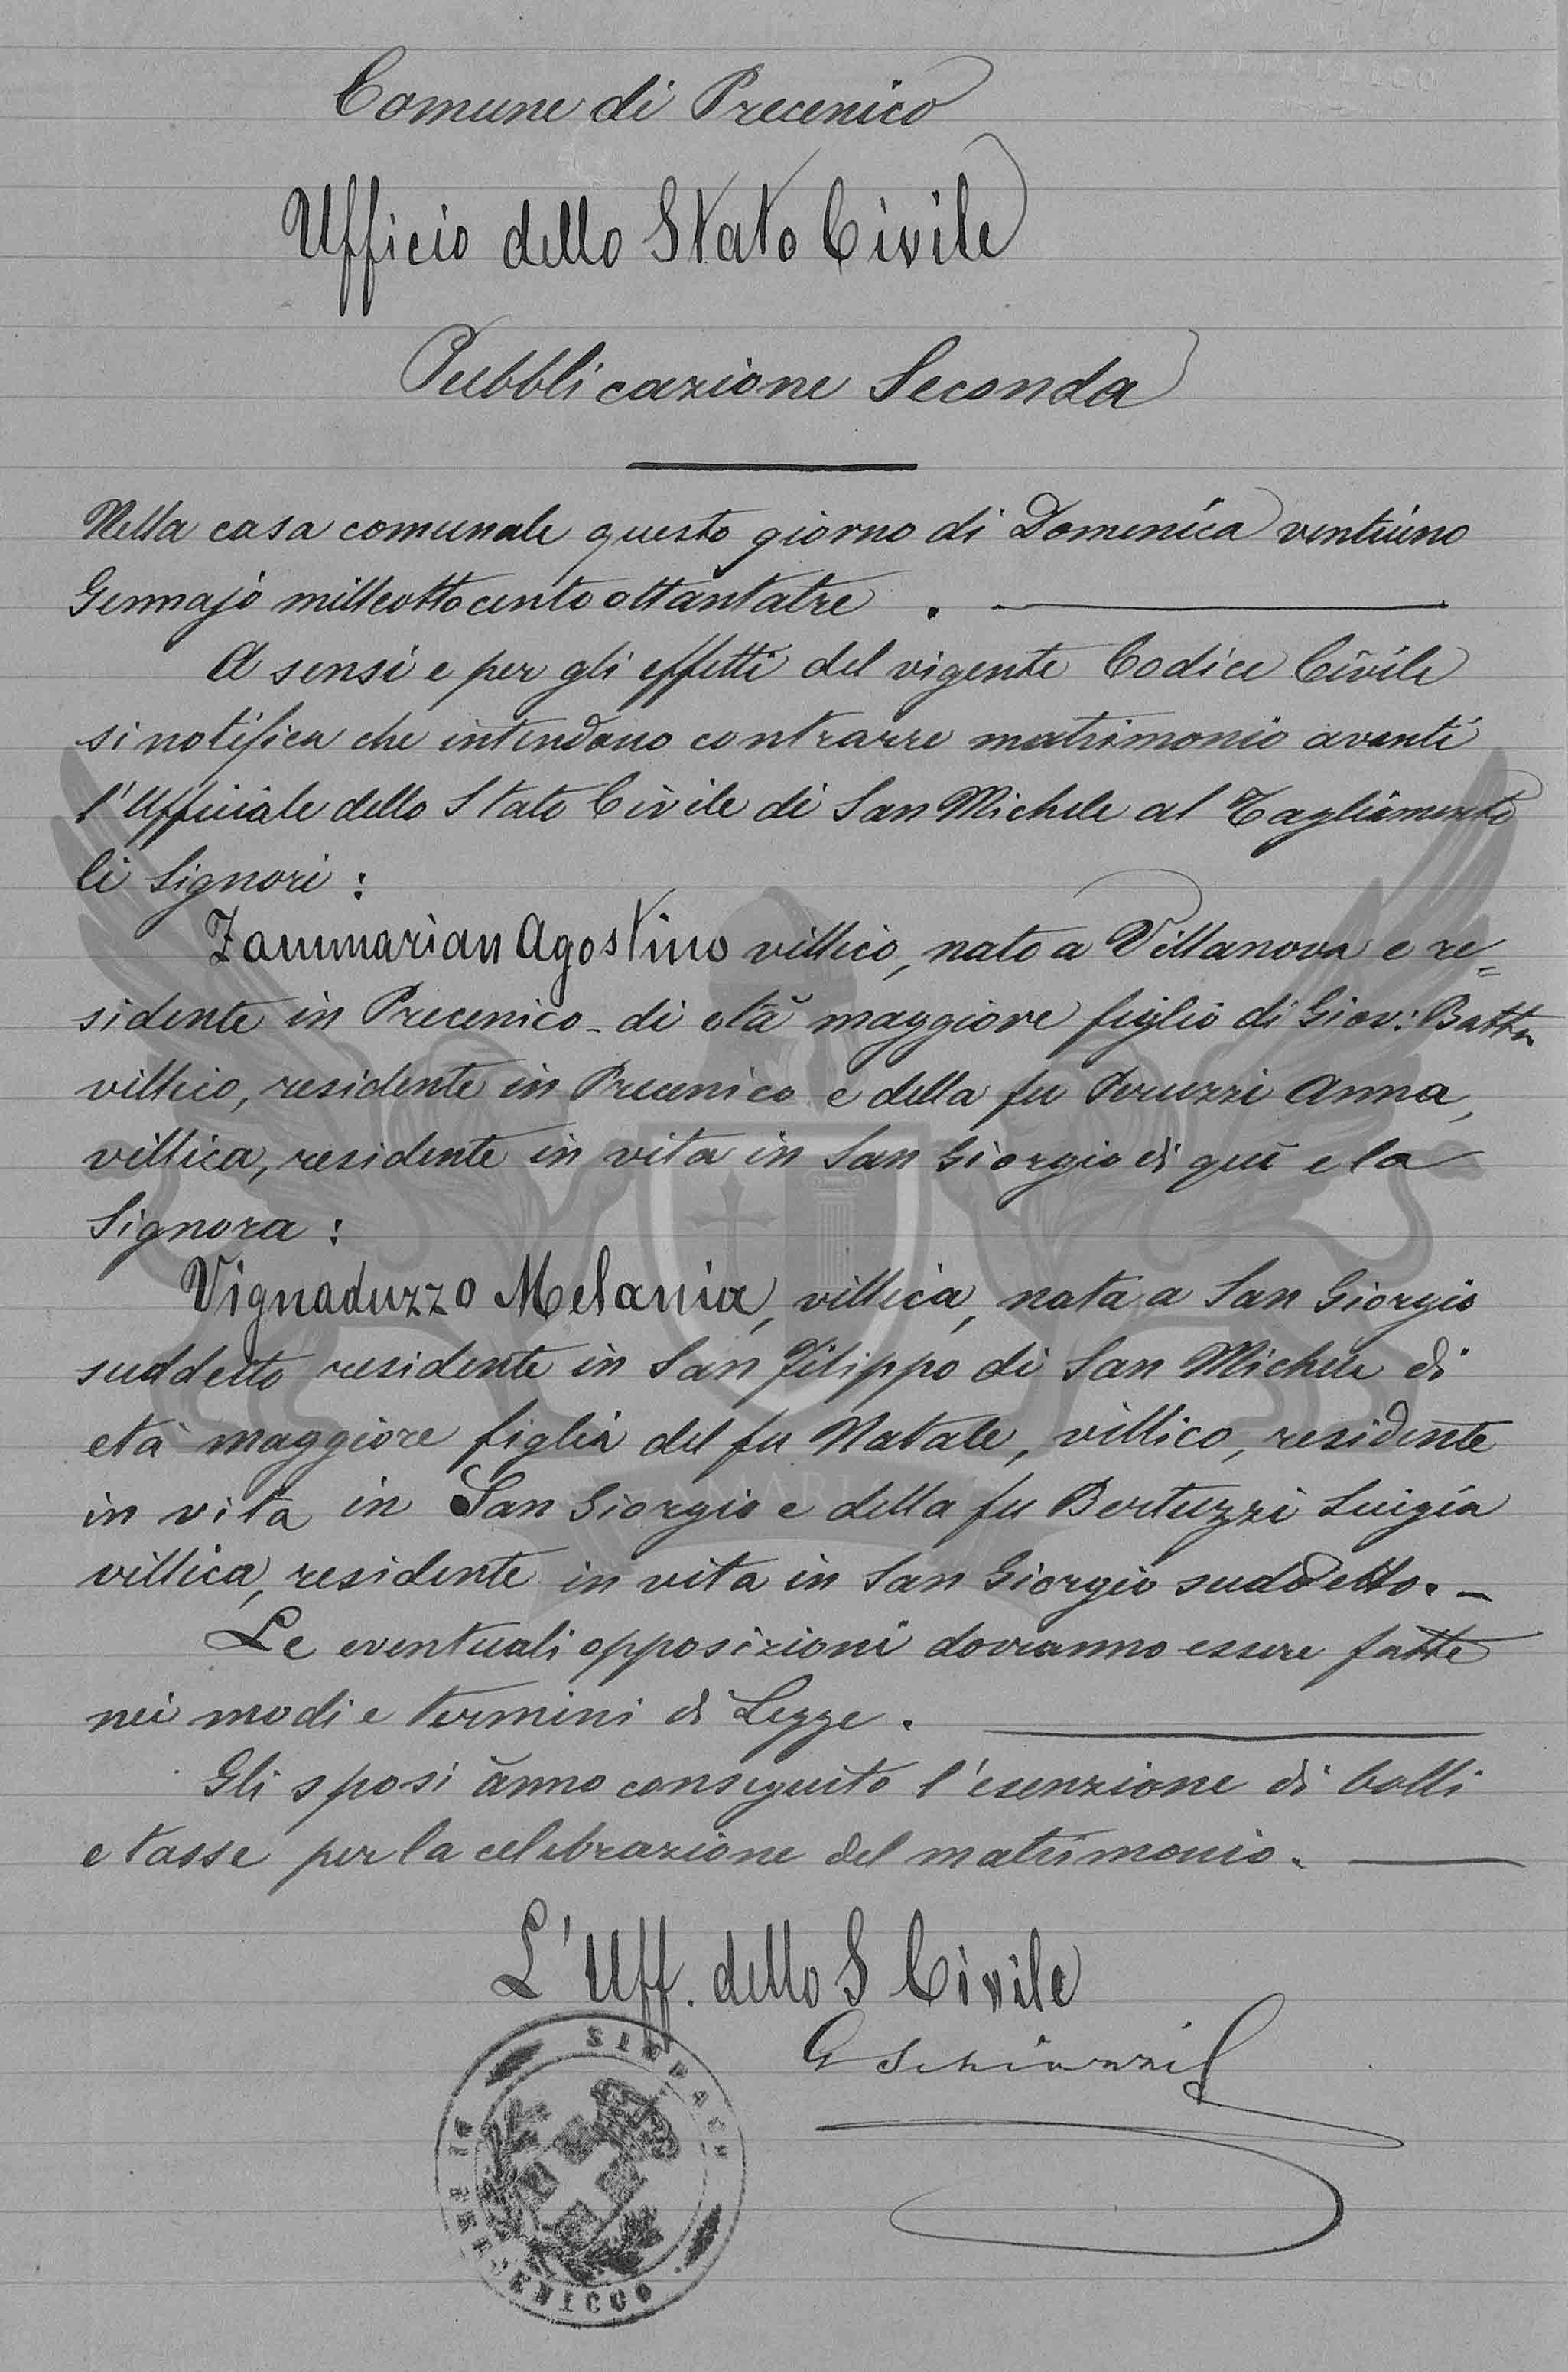 Comune di Precenico
Ufficio dello Stato Civile
Pubblicazione Seconda
Nella casa comunale questo giorno di Domenica ventiuno
Gennajo milleottocento ottantatre .
A sensi e per gli effetti del vigente Codice Civile
si notifica che intendono contrarre matrimonio avanti
l'Ufficiale dello Stato Civile di San Michele al Tagliamento
li Signori :
Zammarian Agostino villico, nato a Villanova e re=
sidente in Precenico - di età maggiore figlio di Giov: Batta
villico, residente in Precenico e della fu Peruzzi Anna,
villica, residente in vita in San Giorgio di quì e la
Signora :
Vignaduzzo Melania, villica, nata a San Giorgio
suddetto residente in San Filippo di San Michele di
età maggiore figlia del fu Natale, villico, residente
in vita in San Giorgio e della fu Bertuzzi Luigia
villica, residente in vita in San Giorgio suddetto. -
Le eventuali opposizioni dovranno essere fatte
nei modi e termini di Legge .
Gli sposi ànno conseguito l'esenzione di bolli
e tasse per la celebrazione del matrimonio.
L'Uff. dello S Civile
G Schiozzi